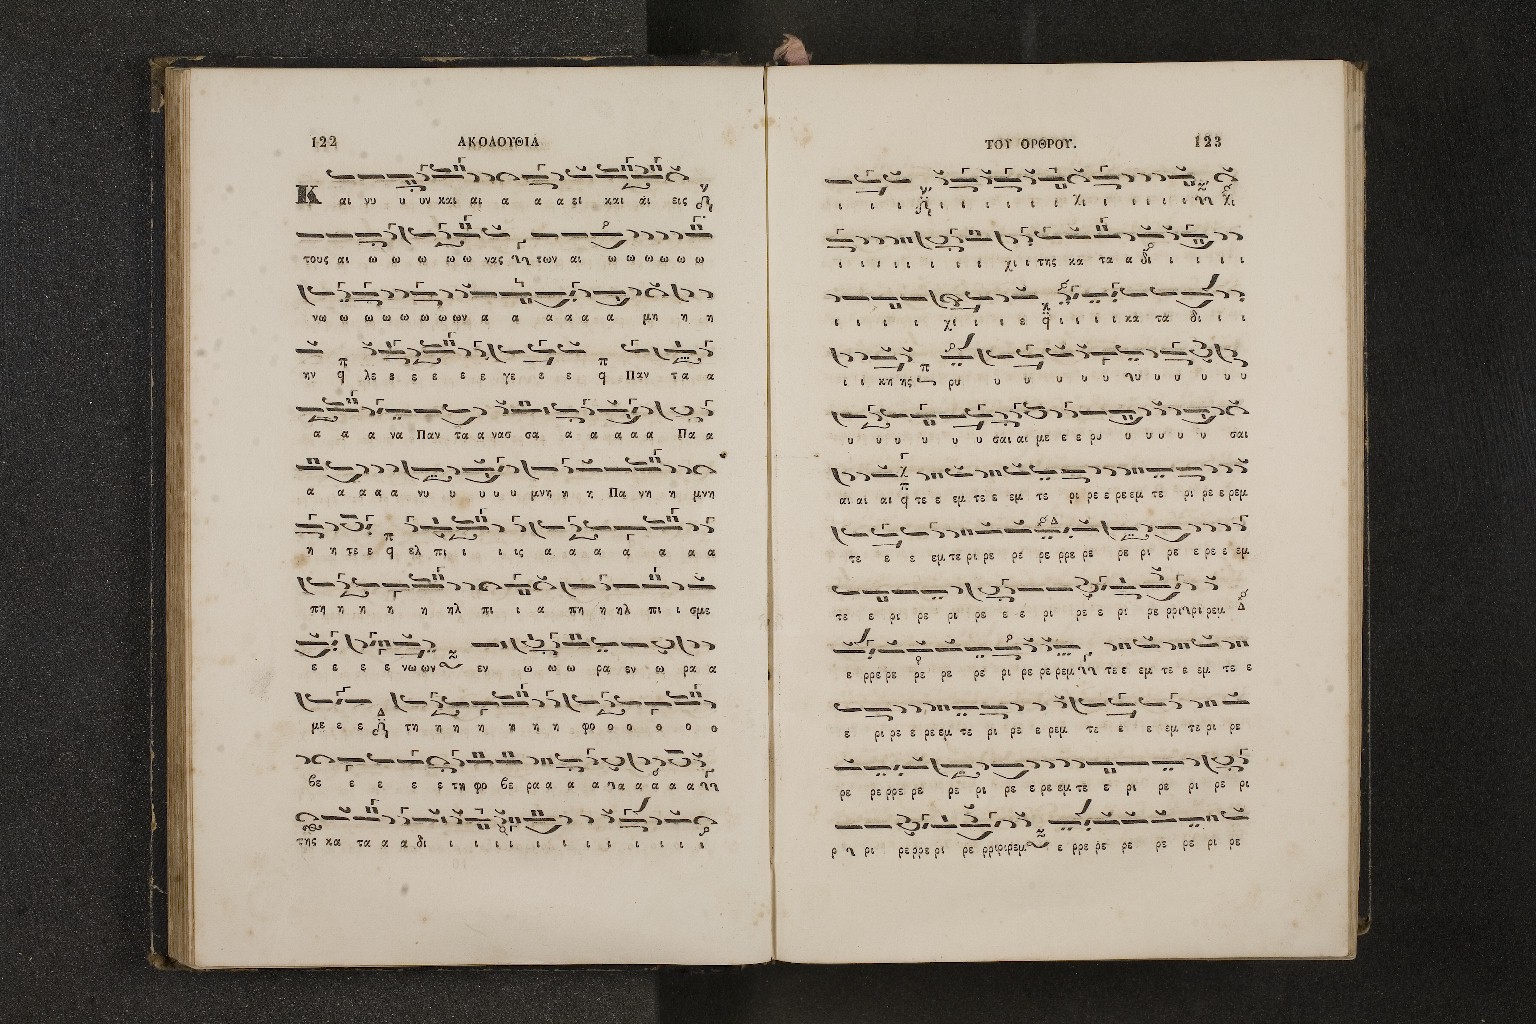 122 ΑΚΟΛΟΥΘΙΑ
Και νυ υ υν και αι α α α ει και άι εις
τους αι ω ω ω ω ω νας των αι ω ω ω ω ω ω
νω ω ω ω ω ω ω ων α α α α α α μη η η
ην λε ε ε ε ε ε γε ε ε ε Παν τα α
α α α να Παν τα α νασ σα α α α α α Πα α
α α α α α νυ υ υ υ υ μνη η η Πα νη η μνη
η η τε ε ελ πι ι ι ις α α α α α α α
πη η η η η ηλ πι ι α πη η ηλ πι ι σμε
ε ε ε ε νω ων εν ω ω ω ρα εν ω ρα α
με ε ε ε τη η η η η η η φο ο ο ο ο ο
βε ε ε ε ε τη φο βε ρα α α α α α α α α
της κα τα α α δι ι ι ι ι ι ι ι ι ι ι
ΤΟΥ ΟΡΘΡΟΥ. 123
ι ι ι ι ι ι ι ι ι χι ι ι ι ι χι
ι ι ι ι ι ι ι χι ι της κα τα α δι ι ι ι
ι ι ι ι χι ι ι ε ι ι ι ι κα τα δι ι ι
ι ι κη ης ρυ υ υ υ υ υ υ υ υ υ υ
υ υ υ υ υ υ σαι αι με ε ε ρυ υ υ υ υ υ σαι
αι αι αι τε ε εμ τε ε εμ τε ρι ρε ε ρε εμ τε ρι ρε ε ρεμ
τε ε ε εμ τε ρι ρε ρε ρε ρρε ρε ρε ρι ρε ε ρε ε εμ
τε ε ρι ρε ρι ρε ε ε ρι ρε ε ρι ρε ρρι ρι ρεμ
ε ρρε ρε ρε ρε ρε ρι ρε ρε ρεμ τε ε εμ τε ε εμ τε ε
ε ρι ρε ε ρε εμ τε ρι ρε ε ρεμ τε ε ε εμ τε ρι ρε
ρε ρε ρρε ρε ρε ρι ρε ε ρε εμ τε ε ρι ρε ρι ρε ρι
ρι ρε ρρε ρι ρε ρρι ρι ρεμ ε ρρε ρε ρε ρε ρε ρι ρε